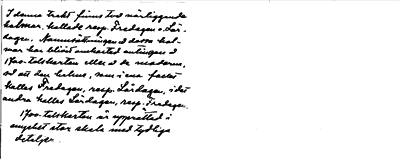 I denna trakt finns två närliggande
holmar, kallade resp. Fredagen o. Lör-
dagen. Namnsättningen å dessa hol-
mar har blivit omkastad antingen å
1700-talskartan eller å de moderna,
så att den holme, som i ena fallet
kallas Fredagen, resp. Lördagen, i det
andra kallas Lördagen, resp. Fredagen.
1700-talskartan är upprättad i
mycket stor skala med tydliga
detaljer.